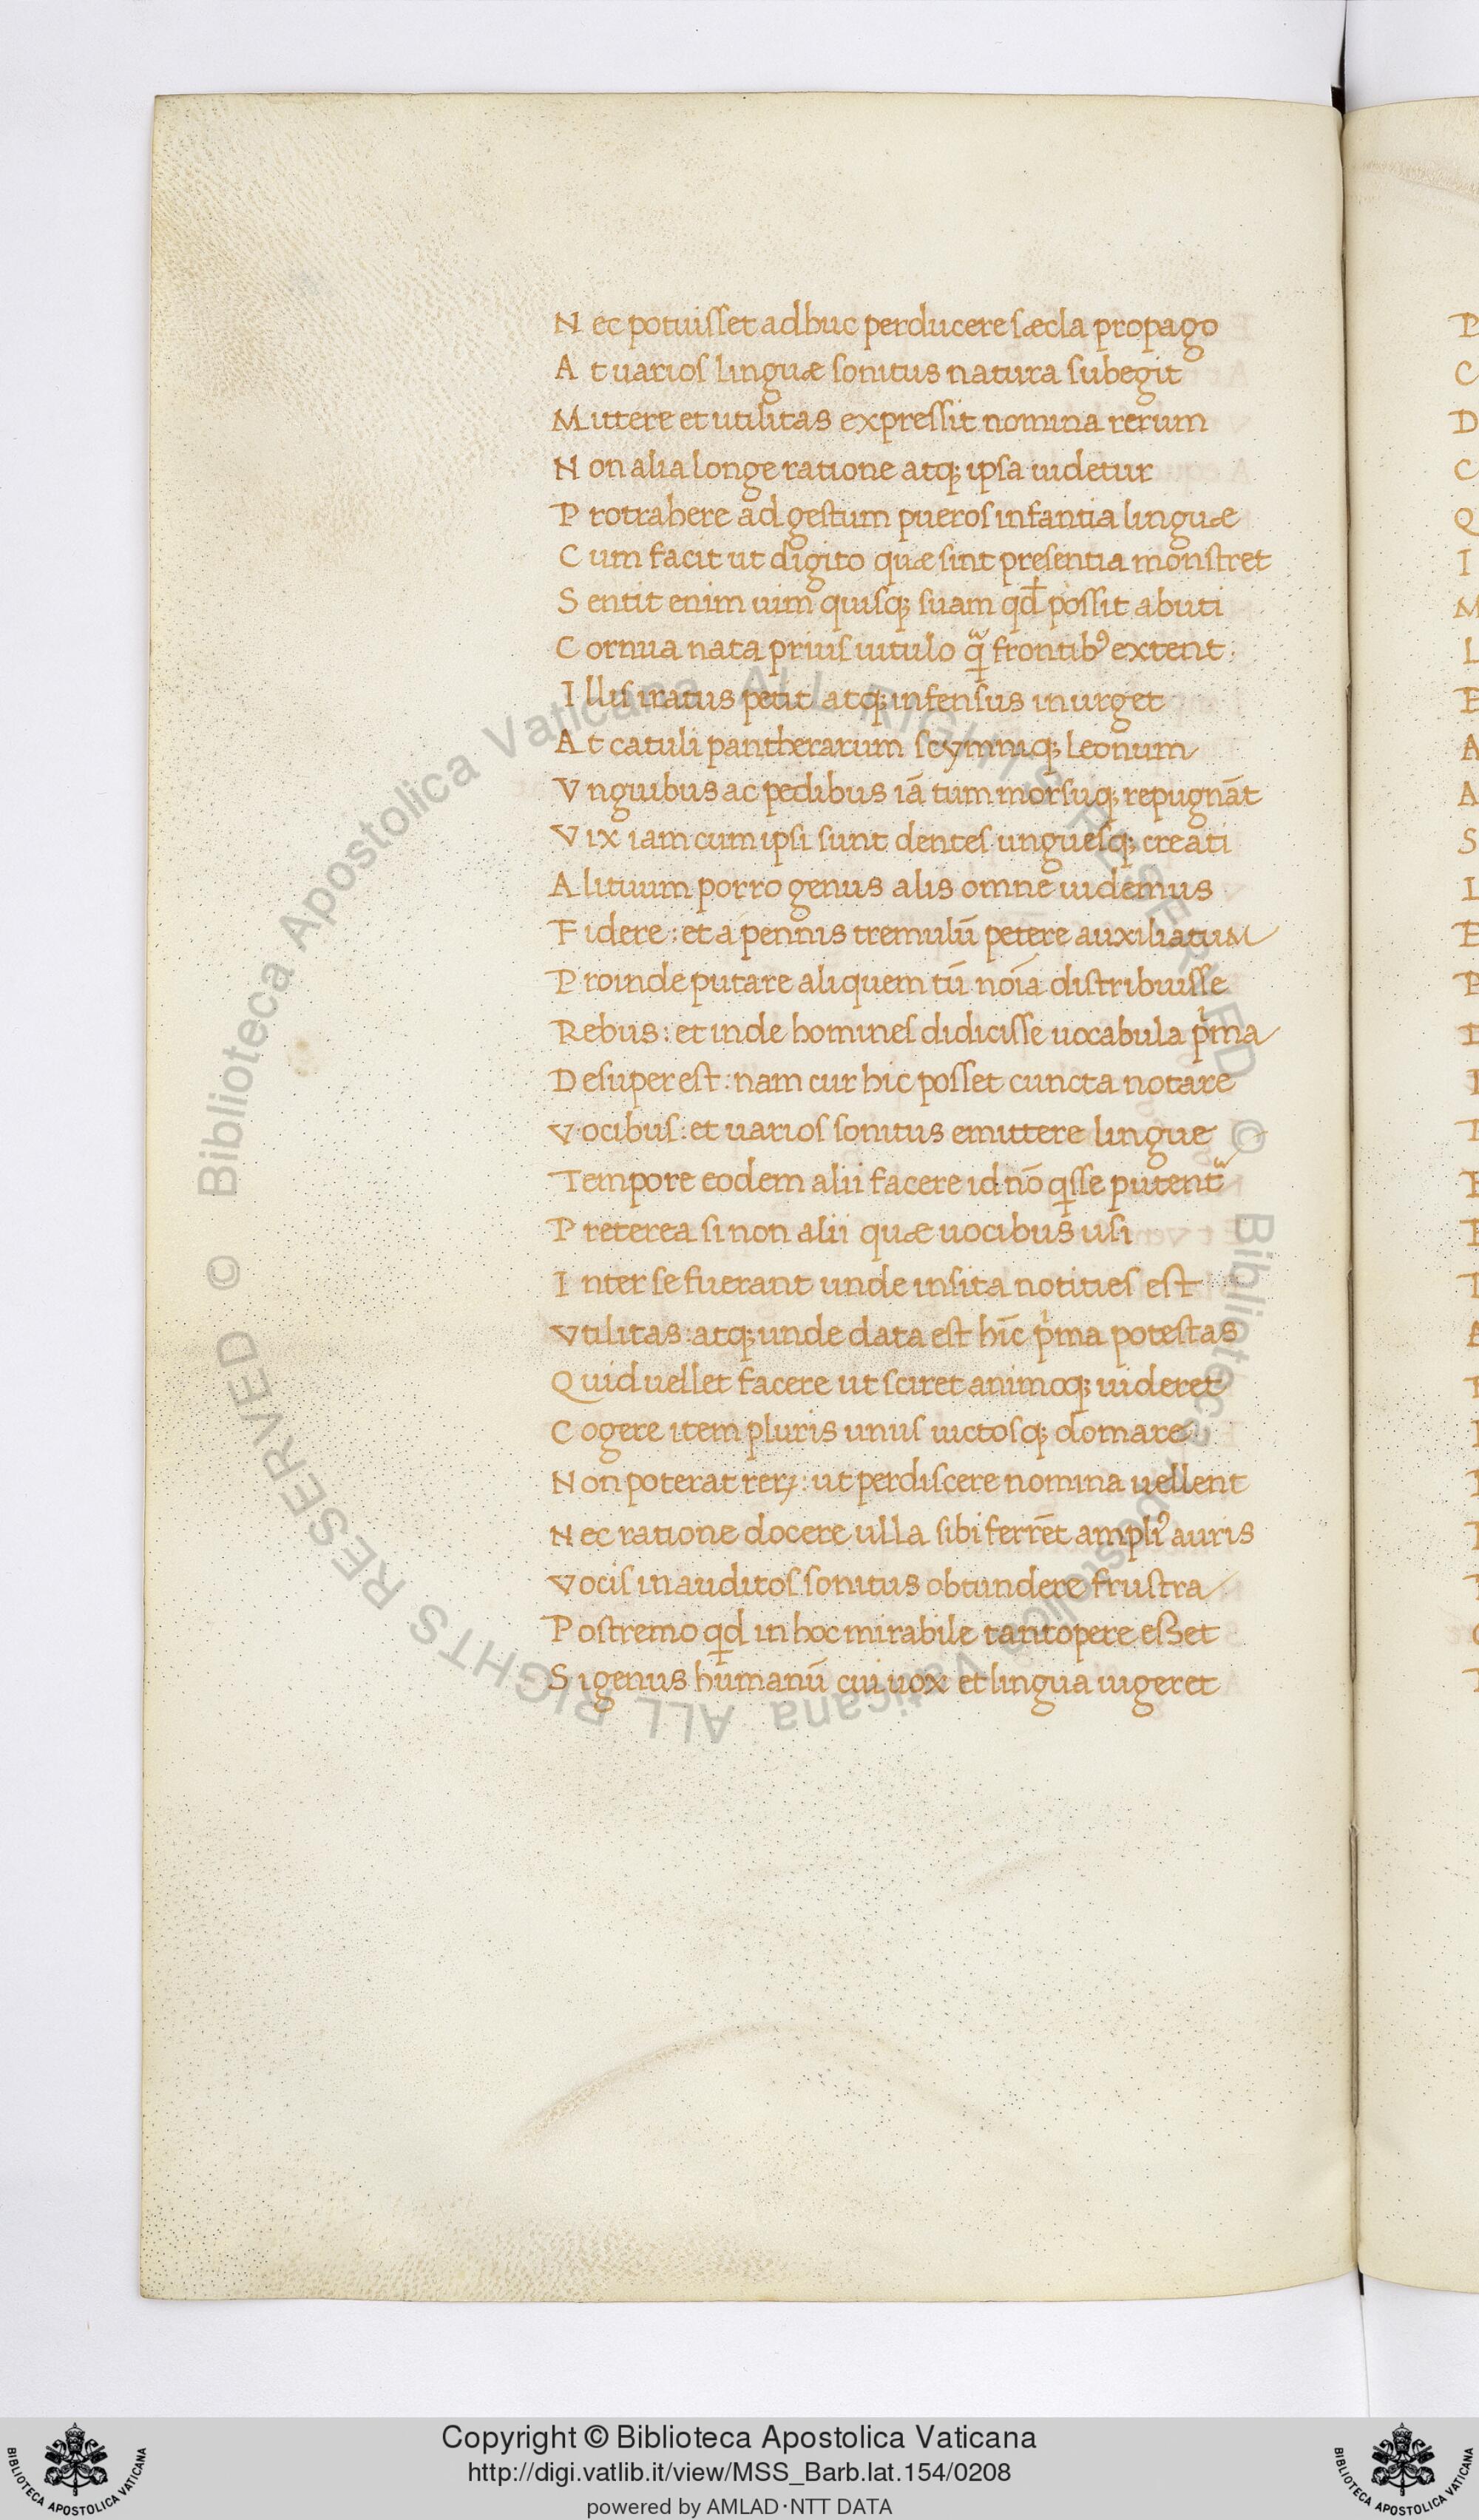 N ec potuisset adhuc perducere sæcla propago
A t uarios linguæ sonitus natura subegit
M ittere et utilitas expressit nomina rerum
N on alia longe ratione atq; ipsa uidetur
P rotrahere ad gestum pueros infantia linguæ
C um facit ut digito quæ sint presentia monstret
S entit enim uim quisq; suam qđ possit abuti
C ornua nata prius uitulo q̃ frontibꝰ extent.
I llis iratus petit atq; infensus inurget
A t catuli pantherarum scymniq; leonum
V nguibus ac pedibus iā tum morsuq; repugnāt
V ix iam cum ipsi sunt dentes unguesq; creati
A lituum porro genus alis omne uidemus
F idere: et a pennis tremulū petere auxiliatuM
P roinde putare aliquem tū noīa distribuisse
Rebus: et inde homines didicisse uocabula pͥma
D esuper est: nam cur hic posset cuncta notare
V ocibus: et uarios sonitus emittere lingue
Tempore eodem alii facere id nō qͥsse putentᷣ
P reterea si non alii quæ uocibus usi
I nter se fuerant unde insita notities est
Vtilitas: atq; unde data est hīc pͥma potestas
Q uid uellet facere ut sciret animoq; uideret
C ogere item pluris unus uictosq; domare
N on poterat reꝝ: ut perdiscere nomina uellent
N ec ratione docere ulla sibi ferrēt ampliꝰ auris
Vocis inauditos sonitus obtundere frustra
P ostremo qͥd in hoc mirabile tantopere esset
S i genus humanū cui uox et lingua uigeret
P
C
D
C
Q
I
M
L
A
A
S
© Biblioteca Apostolica Vaticana ALL RIGHTS RESERVED © Biblioteca Apostolica Vaticana ALL RIGHTS RESERVED
Copyright © Biblioteca Apostolica Vaticana
http://digi.vatlib.it/view/MSS_Barb.lat.154/0208
powered by AMLAD·NTT DATA
BIBLIOTECA APOSTOLICA VATICANA
BIBLIOTECA APOSTOLICA VATICANA